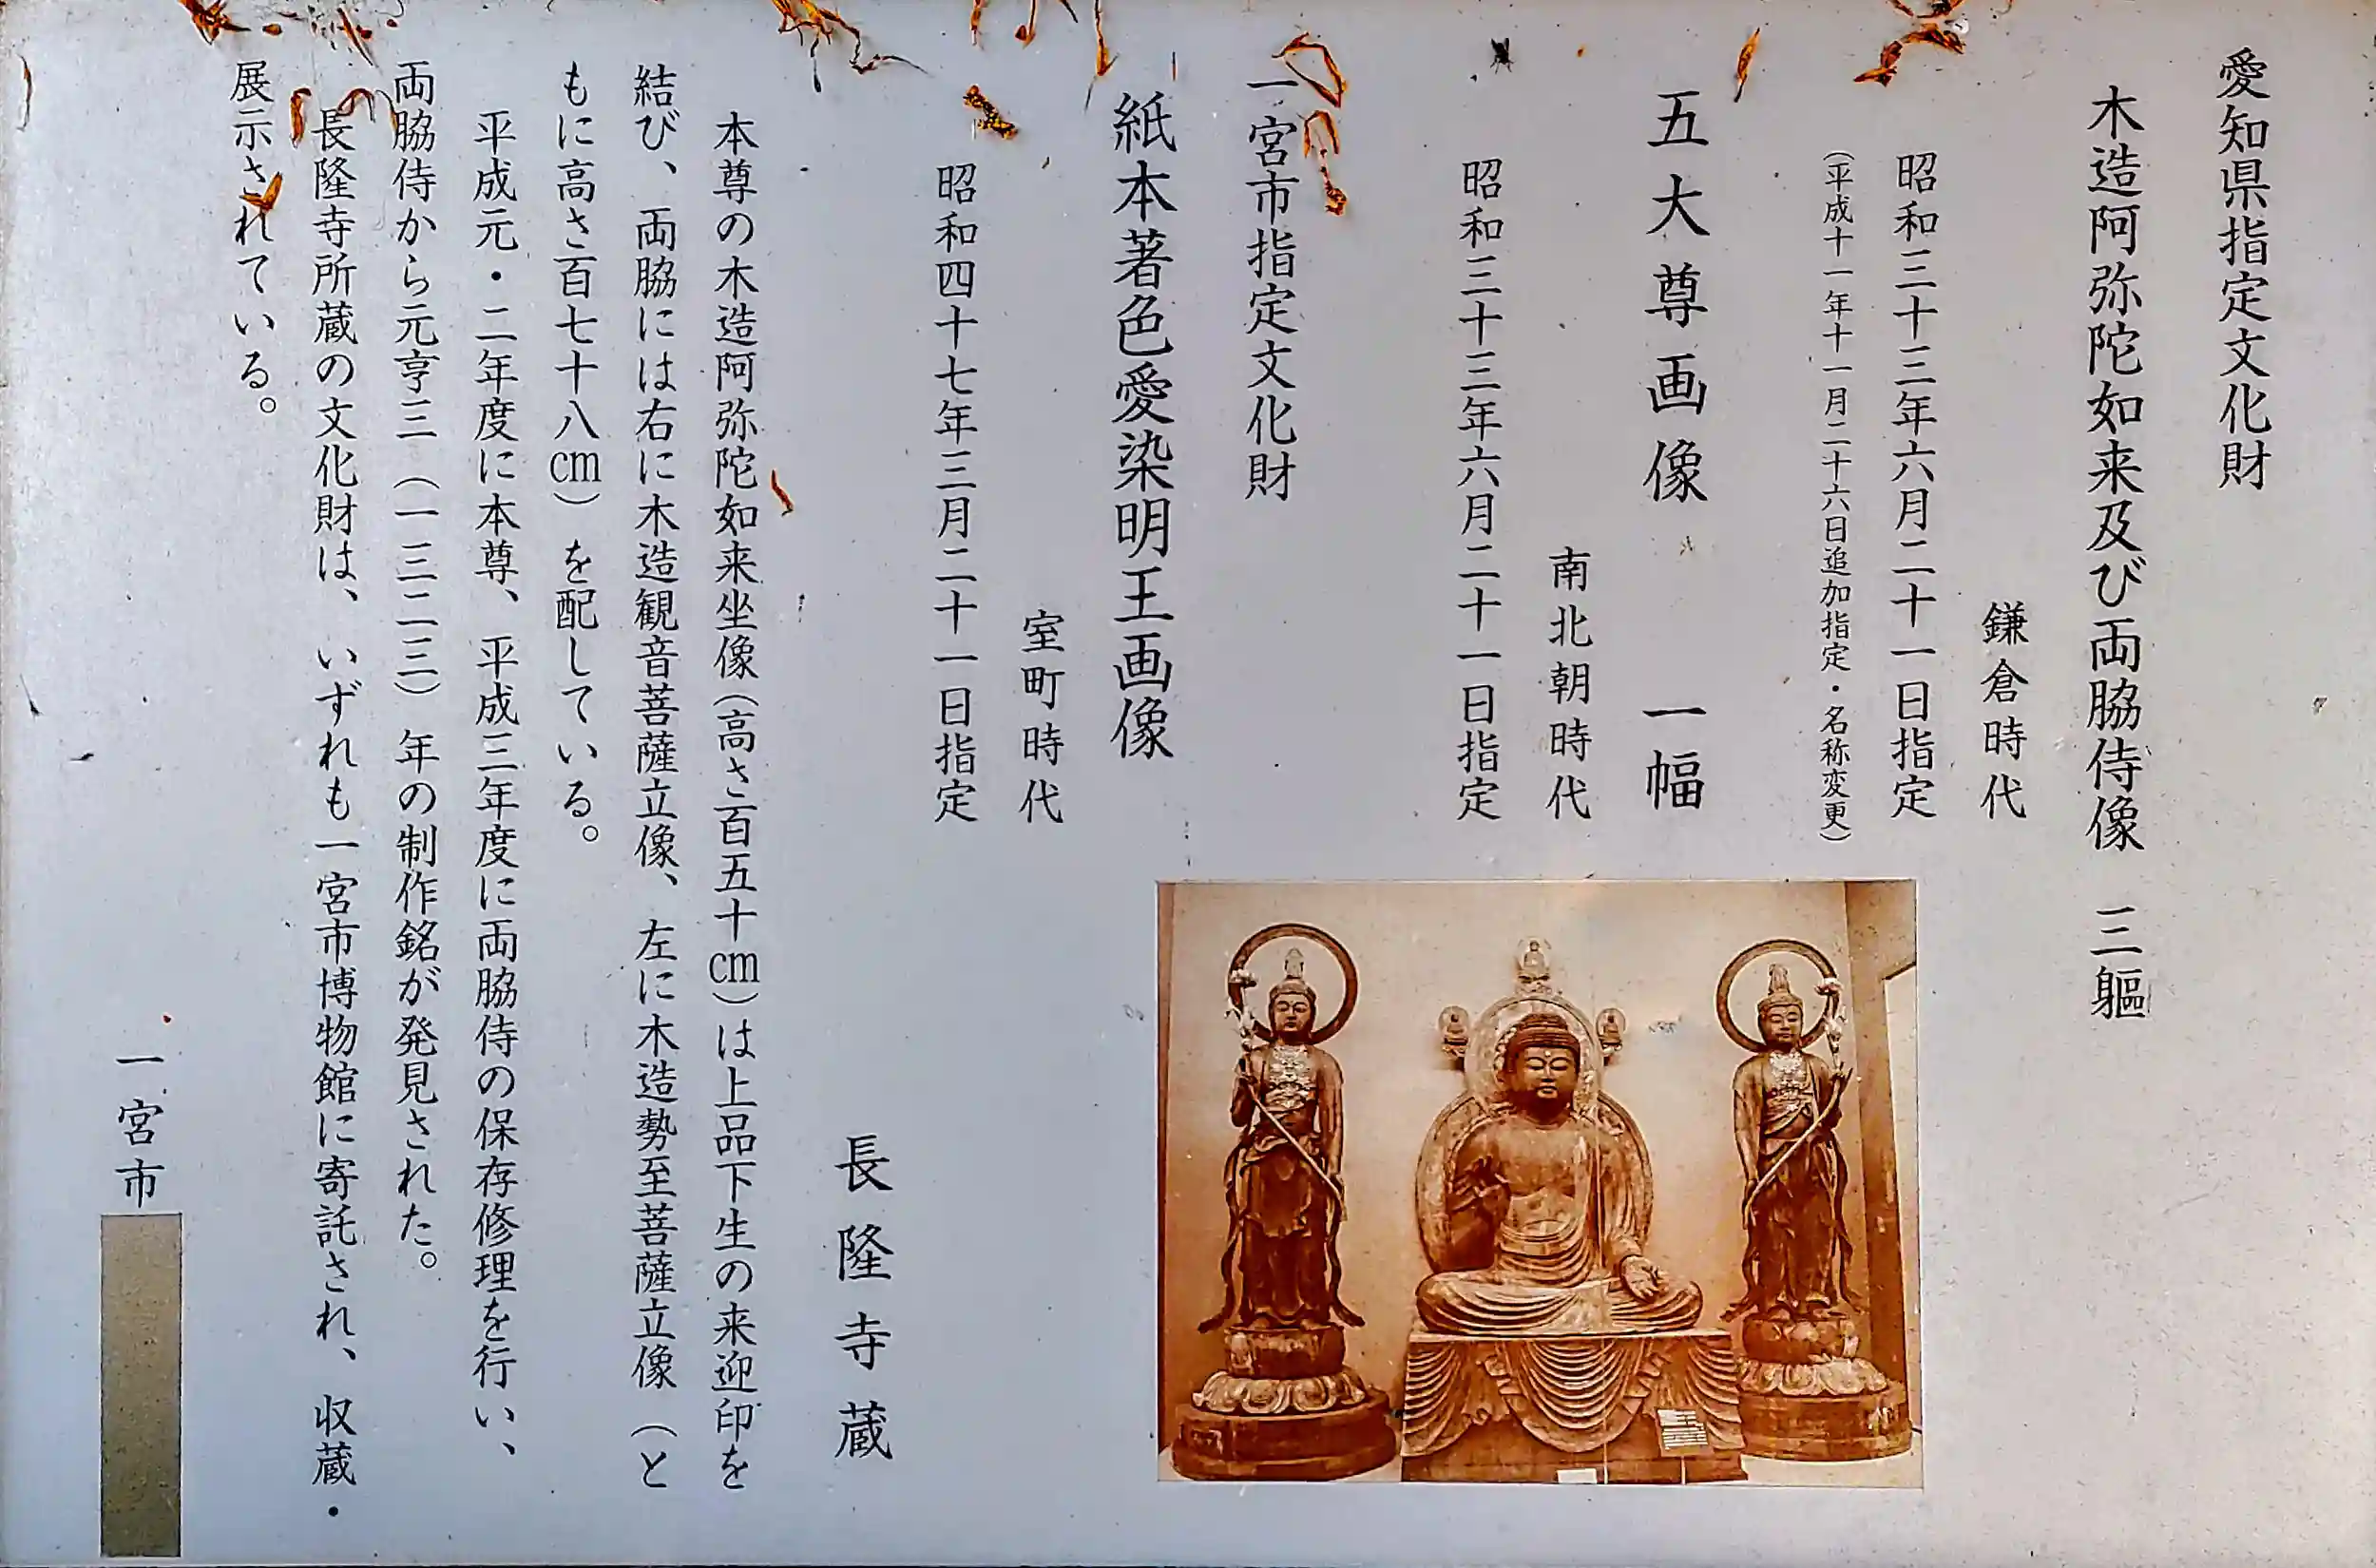 愛知県指定文化財
木造阿弥陀如来及び両脇侍像　三軀
鎌倉時代
昭和三十三年六月二十一日指定
（平成十一年十一月二十六日追加指定・名称変更）
五大尊画像　一幅
南北朝時代
昭和三十三年六月二十一日指定
一宮市指定文化財
紙本著色愛染明王画像
室町時代
昭和四十七年三月二十一日指定
長隆寺蔵
本尊の木造阿弥陀如来坐像（高さ百五十cm）は上品下生の来迎印を
結び、両脇には右に木造観音菩薩立像、左に木造勢至菩薩立像（と
もに高さ百七十八cm）を配している。
平成元・二年度に本尊、平成三年度に両脇侍の保存修理を行い、
両脇侍から元亨三（一三二三）年の制作銘が発見された。
長隆寺所蔵の文化財は、いずれも一宮市博物館に寄託され、収蔵・
展示されている。
一宮市